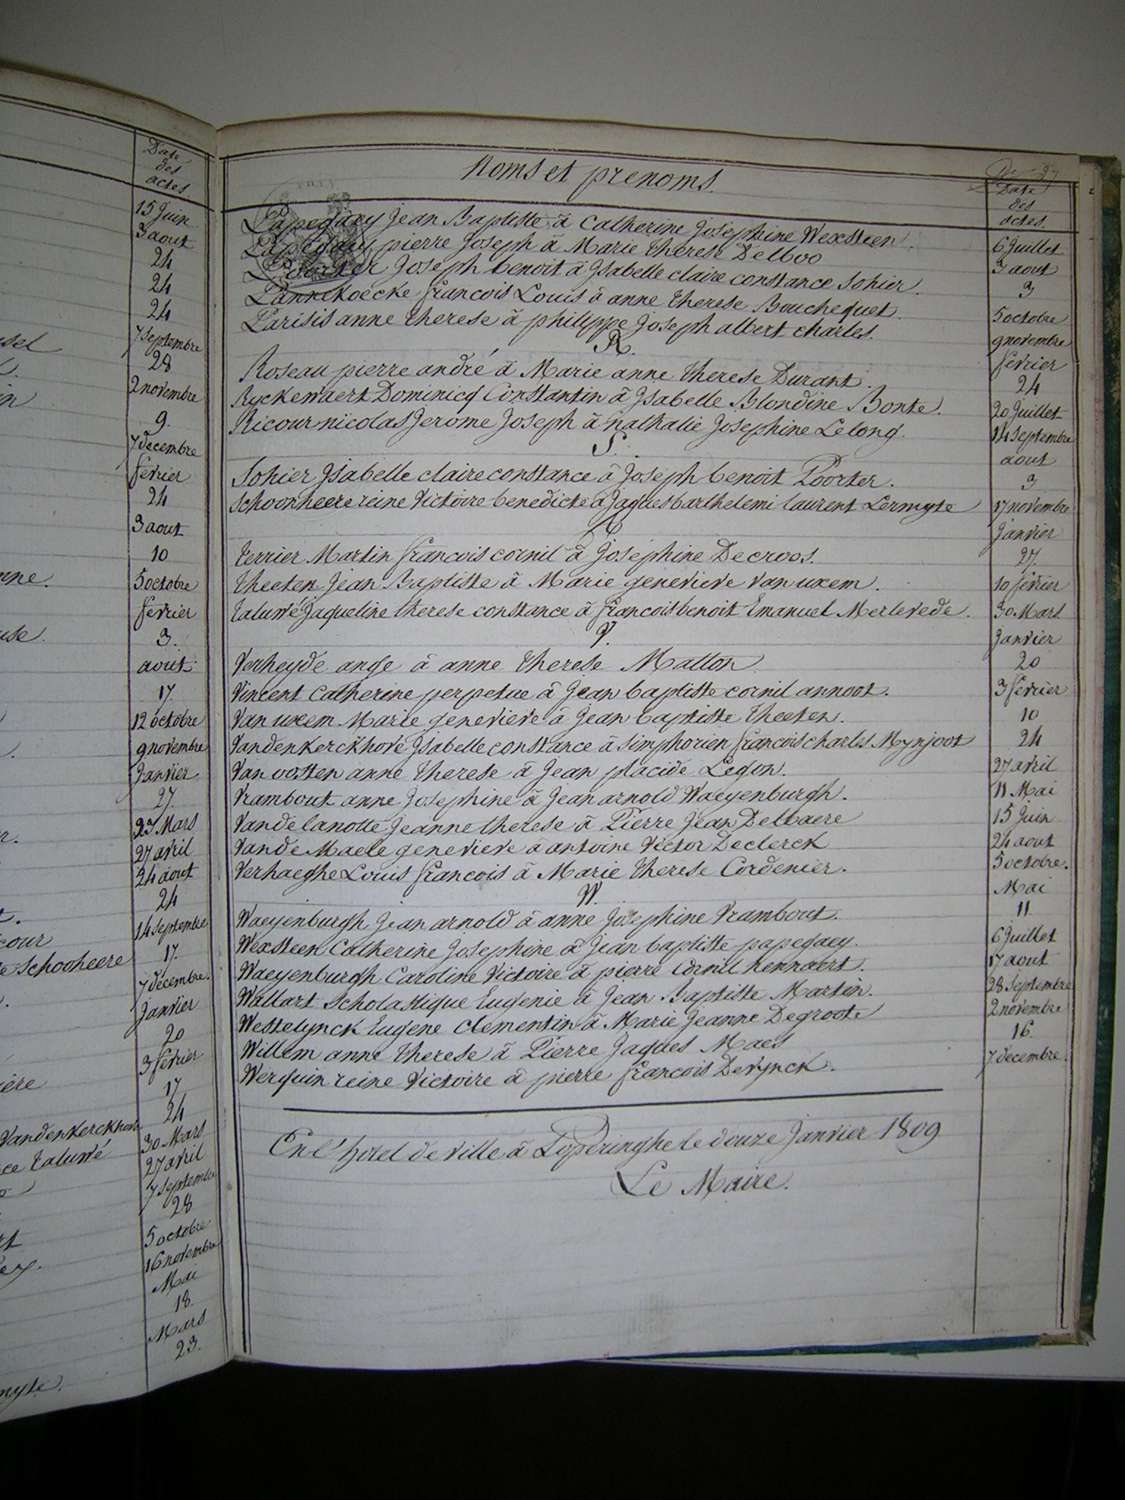 Date
des
actes
15 Juin
3 aout
24
24
24
7 septembre
28
2 novembre
9
7 decembre
fevrier
24
3 aout
10
5 octobre
fevrier
3
aout
17
12 octobre
9 novembre
Janvier
27
23 Mars
27 avril
24 aout
24
14 septembre
17
de Schooheere
7 decembre
Janvier
20
3 fevrier
17
24
Vandenkerckhove
30 Mars
ce Taluvré
27 avril
7 septembre
28
5 octobre
16 novembre
Mai
18
Mars
23
Noms et prenoms
Date
des
actes
Papegaey Jean Baptiste à Catherine Josephine Wexsteen. 6 Juillet
Papegaey pierre Joseph à Marie therese Delboo 3 aout
Poorter Joseph benoit à Ysabelle claire constance Sohier. 3
Pannekoecke francois Louis à anne therese Bouchequet. 5 octobre
Parisis anne therese à philippe Joseph albert charles. 9 novembre
R. fevrier
Roseau pierre andré à Marie anne therese Durant. 24
Ryckewaert Dominicq Constantin à Ysabelle Blondine Bonte. 20 Juillet
Ricour nicolas Jerome Joseph à nathalie Josephine Lelong. 14 septembre
S. aout
Sohier Ysabelle claire constance à Joseph benoit Poorter. 3
Schoonheere reine Victoire benedicte à Jaques barthelemi laurent Lermyte 17 novembre
T. Janvier
Terrier Martin francois cornil à Josephine Decroos. 27
Theeten Jean Baptiste à Marie genevieve Van uxem. 10 fevrier
Taluvré Jaqueline therese constance à francois benoit Emanuel Merlevede. 30 Mars
V. Janvier
Verheyde ange à anne therese Matton 20
Vincent Catherine perpetue à Jean baptiste cornil annoot. 3 fevrier
Van uxem Marie genevieve à Jean baptiste Theeten. 10
Vandenkerckhove Ysabelle constance à simphorien francois charles Mynjoot 24
Van oosten anne therese à Jean placide Legon. 27 avril
Vrambout anne Josephine à Jean arnold Waeyenburgh. 11 Mai
Vandelanotte Jeanne therese à Pierre Jean Delbaere 15 Juin
Vande Maele genevieve à antoine Victor Declerck 24 aout
Verhaeghe Louis francois à Marie therese Cordenier. 5 octobre.
W. Mai
Waeyenburgh Jean arnold à anne Josephine Vrambout. 11
Wexsteen Catherine Josephine à Jean baptiste papegaey. 6 Juillet
Waeyenburgh Caroline Victoire à pierre Cornil hennaert. 17 aout
Wallart Scholastique Eugenie à Jean Baptiste Martin. 28 septembre
Westelynck Eugene Clementin à Marie Jeanne Degroote 2 novembre
Willem anne therese à Pierre Jaques Maes 16
Werquin reine Victoire à pierre francois Devynck. 7 decembre.
En l'hotel de ville à Poperinghe le douze Janvier 1809
Le Maire.